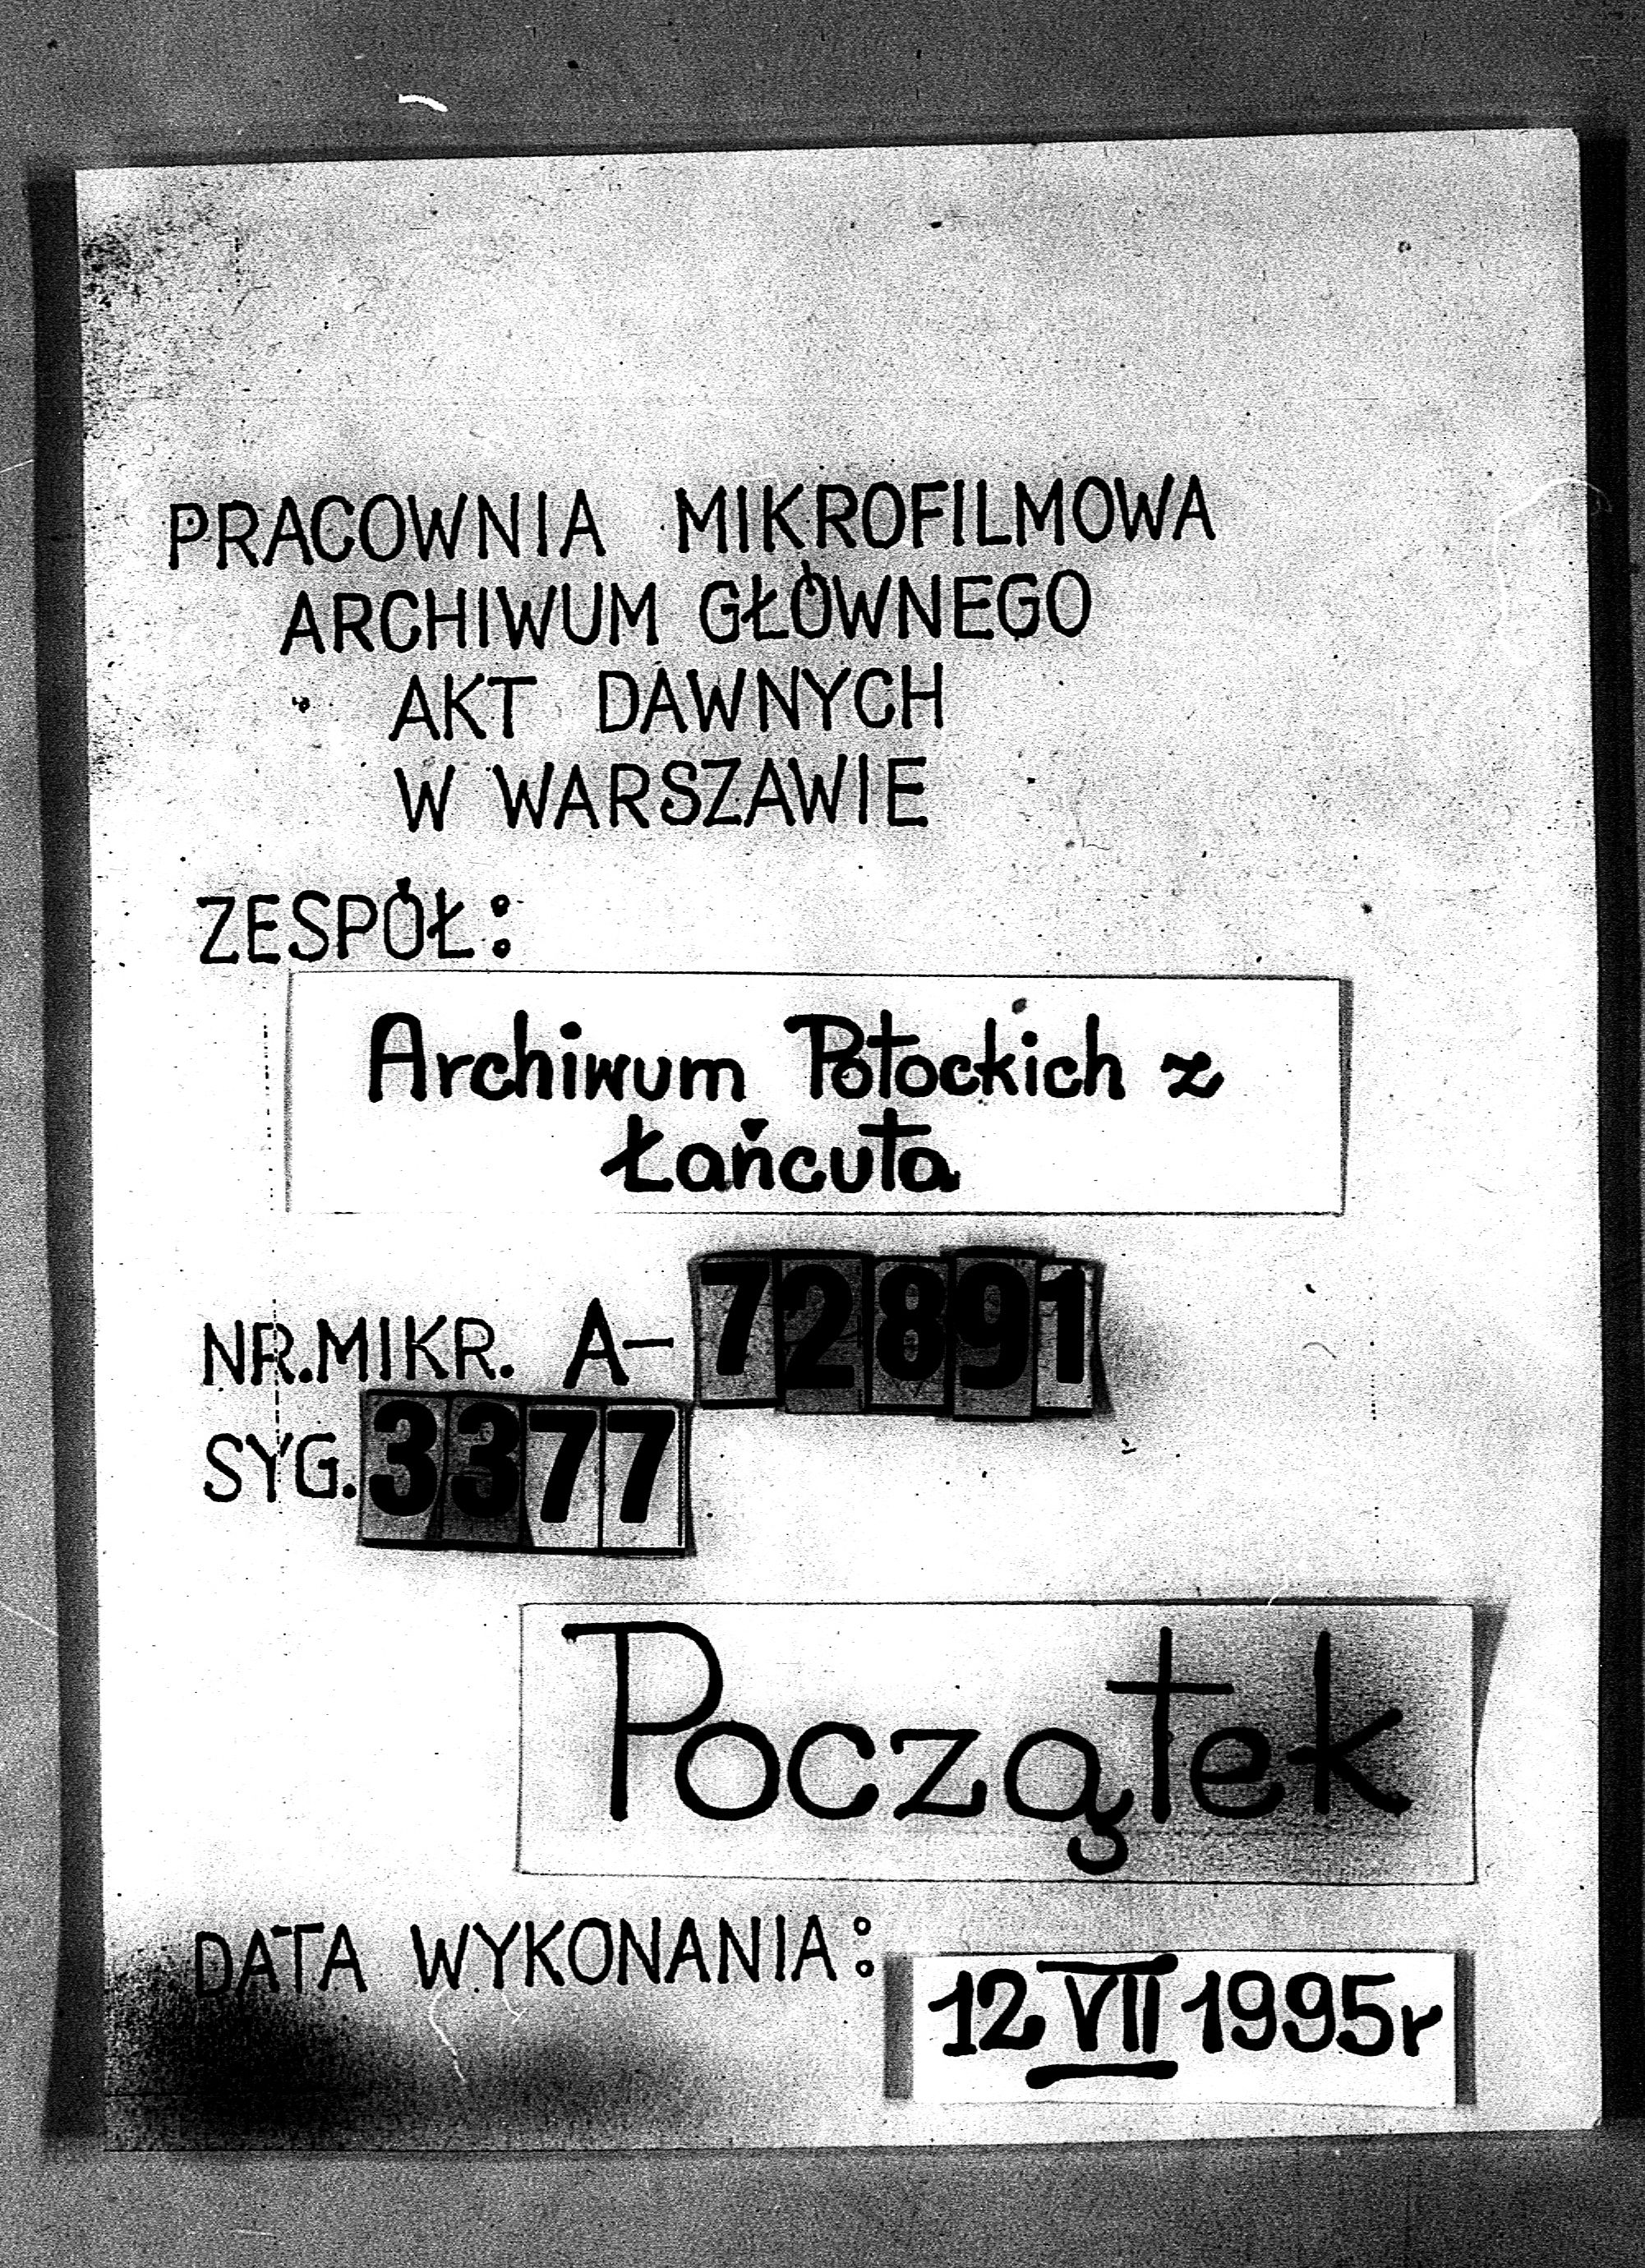 PRACOWNIA MIKROFILMOWA
ARCHIWUM GŁÓWNEGO
AKT DAWNYCH
W WARSZAWIE
ZESPÓŁ:
Archiwum Potockich z
Łańcuta
NR.MIKR. A- 72891
SYG. 3377
Początek
DATA WYKONANIA: 12 VII 1995r